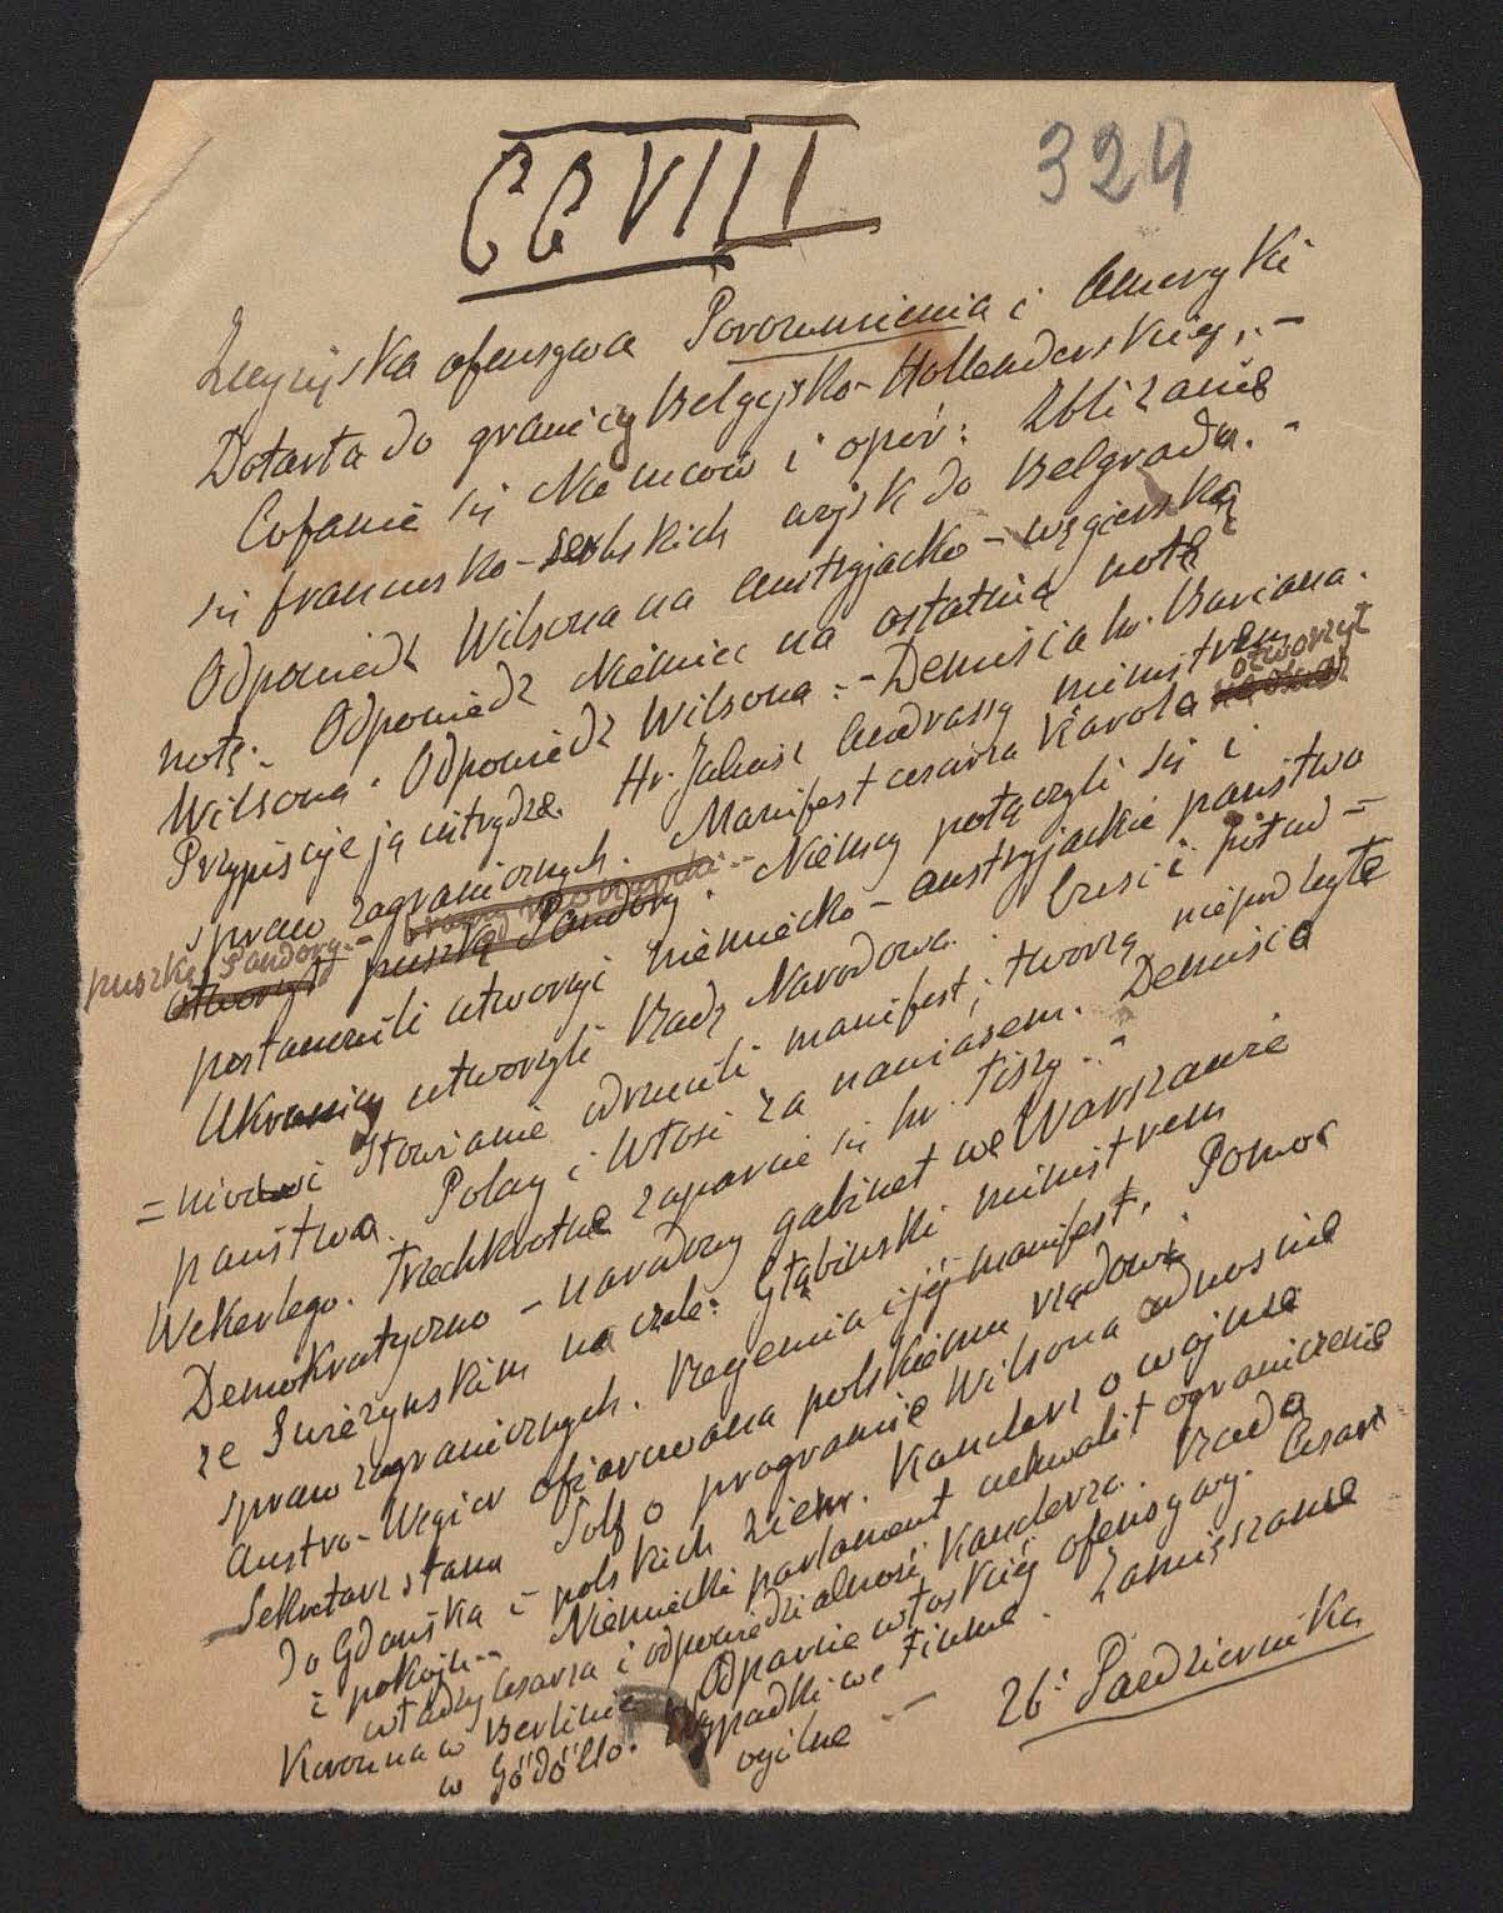 CCVIII
324
Zwycięska ofensywa Porozumienia i Ameryki
Dotarła do granicy Belgijsko-Hollenderskiej. -
Cofanie się Niemców i opór: Zbliżanie
się francusko-serbskich wojsk do Belgradu. -
Odpowiedź Wilsona na austryjacko-węgierską
notę. - Odpowiedź Niemiec na ostatnią notę
Wilsona. Odpowiedź Wilsona: - Demisia hr. Buriana.
Przypisuje ją intrydze. Hr. Juliusz Andrassy ministrem
spraw zagranicznych. Manifest cesarza Karola otworzył
puszkę Pandory. -
otworzył puszkę Pandory. Niemcy połączyli się i
postanowili utworzyć niemiecko-austryjackie państwo
Ukraincy utworzyli Radę Narodową. Czesi i połud=
=niowi Słowianie odrzucili manifest; tworzą niepodległe
państwa. Polacy i Włosi za nawiasem. Demisia
Wekerlego. Trzechkrotne zaparcie się hr. Tiszy. -
Demokratyczno-narodowy gabinet we Warszawie
ze Świeżynskim na czele: Głąbinski ministrem
spraw zagranicznych. Regencia i jej manifest. Pomoc
Austro-Węgier ofiarowana polskiemu rządowi.
Sekretarz stanu Solf o programie Wilsona odnosnie
do Gdańska i polskich ziem. Kanclerz o wojnie
i pokoju. - Niemiecki parlament uchwalił ograniczenie
władzy cesarza i odpowiedzialność Kanclerza. Rada
Koronna w Berlinie Odparcie włoskiej ofensywy. Cesarz
w Gödöllo. Wypadki we Fiume. Zamięszanie
ogólne -
26: Pazdziernika